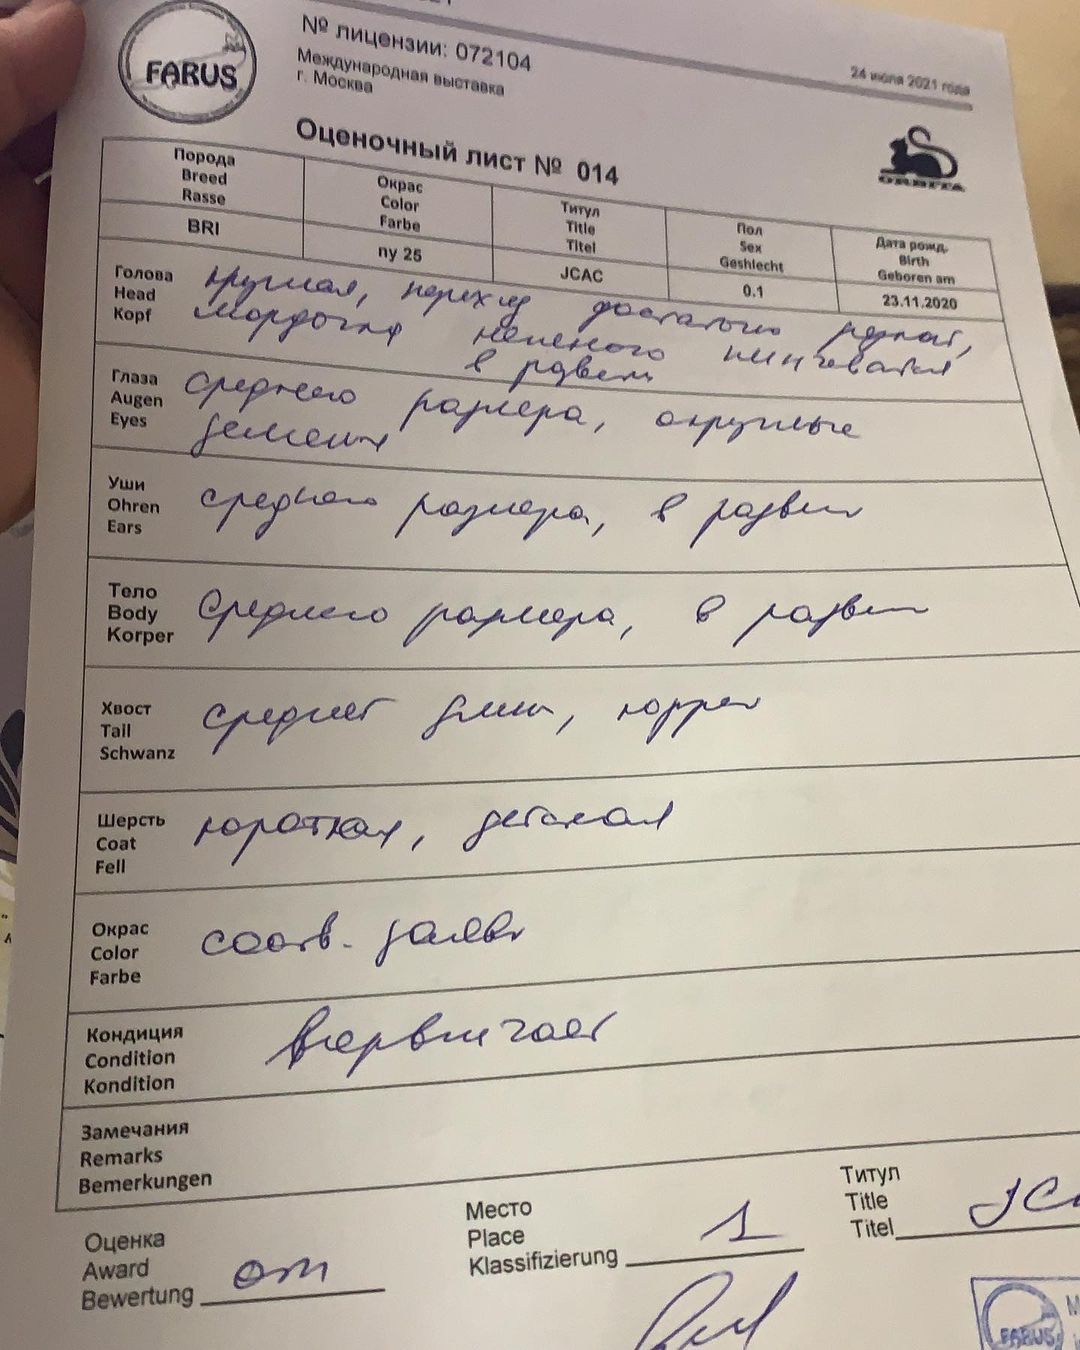 FARUS
№ лицензии: 072104
Международная выставка
г. Москва
24 июля 2021 года
ORBITA
Оценочный лист № 014
Порода
Breed
Rasse
Окрас
Color
Farbe
Титул
Title
Titel
Пол
Sex
Geshlecht
Дата рожд.
Birth
Geboren am
BRI
ny 25
JCAC
0.1
23.11.2020
Голова
Head
Kopf
круглая, переход достаточно
мордочка немного
в развит
Глаза
Augen
Eyes
среднего размера, округлые
Уши
Ohren
Ears
среднего размера, в развит
Тело
Body
Korper
среднего размера, в развит
Хвост
Tail
Schwanz
средней длин,
Шерсть
Coat
Fell
короткая, детская
Окрас
Color
Farbe
соотв. заявл
Кондиция
Condition
Kondition
Замечания
Remarks
Bemerkungen
Оценка
Award
Bewertung
отл
Место
Place
Klassifizierung
1
Титул
Title
Titel
FARUS